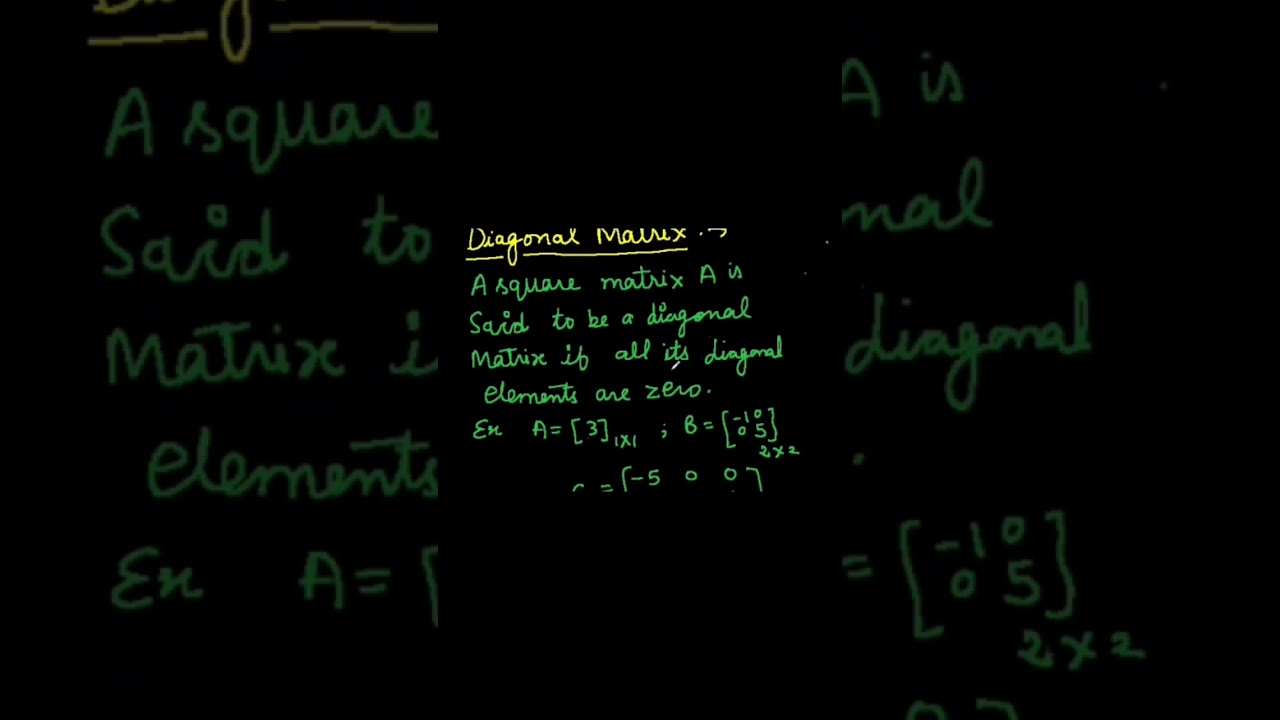 Diagonal Matrix :→
A square matrix A is
Said to be a diagonal
Matrix if all its diagonal
elements are zero.
Ex A = [3]1x1 ; B = [-1 0
0 5]2x2
C = [-5 0 0]